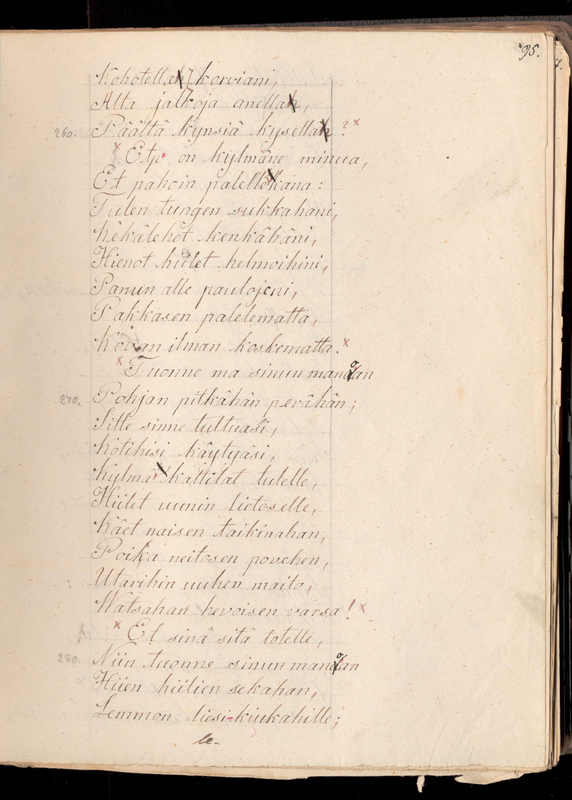 95.
Kohotellan korviani,
Alta jalkoja anellan,
260. Päältä kynsiä kysellän?
Etpä on kylmäne minua,
Et pahoin palellekana:
Tulen tungen sukkahani,
Kekälehet kenkähäni,
Hienot hiilet helmoihini,
Panun alle paulojeni,
Pakkasen palelematta,
Kovan ilman koskematta.
Tuonne ma sinun manoan
270. Pohjan pitkähän perähän;
Sitte sinne tultuasi,
Kotihisi käytyäsi,
Kylmä kattilat tulelle,
Hiilet uunin lietoselle,
Käet naisen taikinahan,
Poika neitosen povehen,
Utarihin uuhen maito,
Watsahan hevoisen varsa!
Et sinä sitä totelle,
280. Niin tuonne sinun manoan
Hiien hiilien sekahan,
Lemmon liesi-kiukahille;
le-